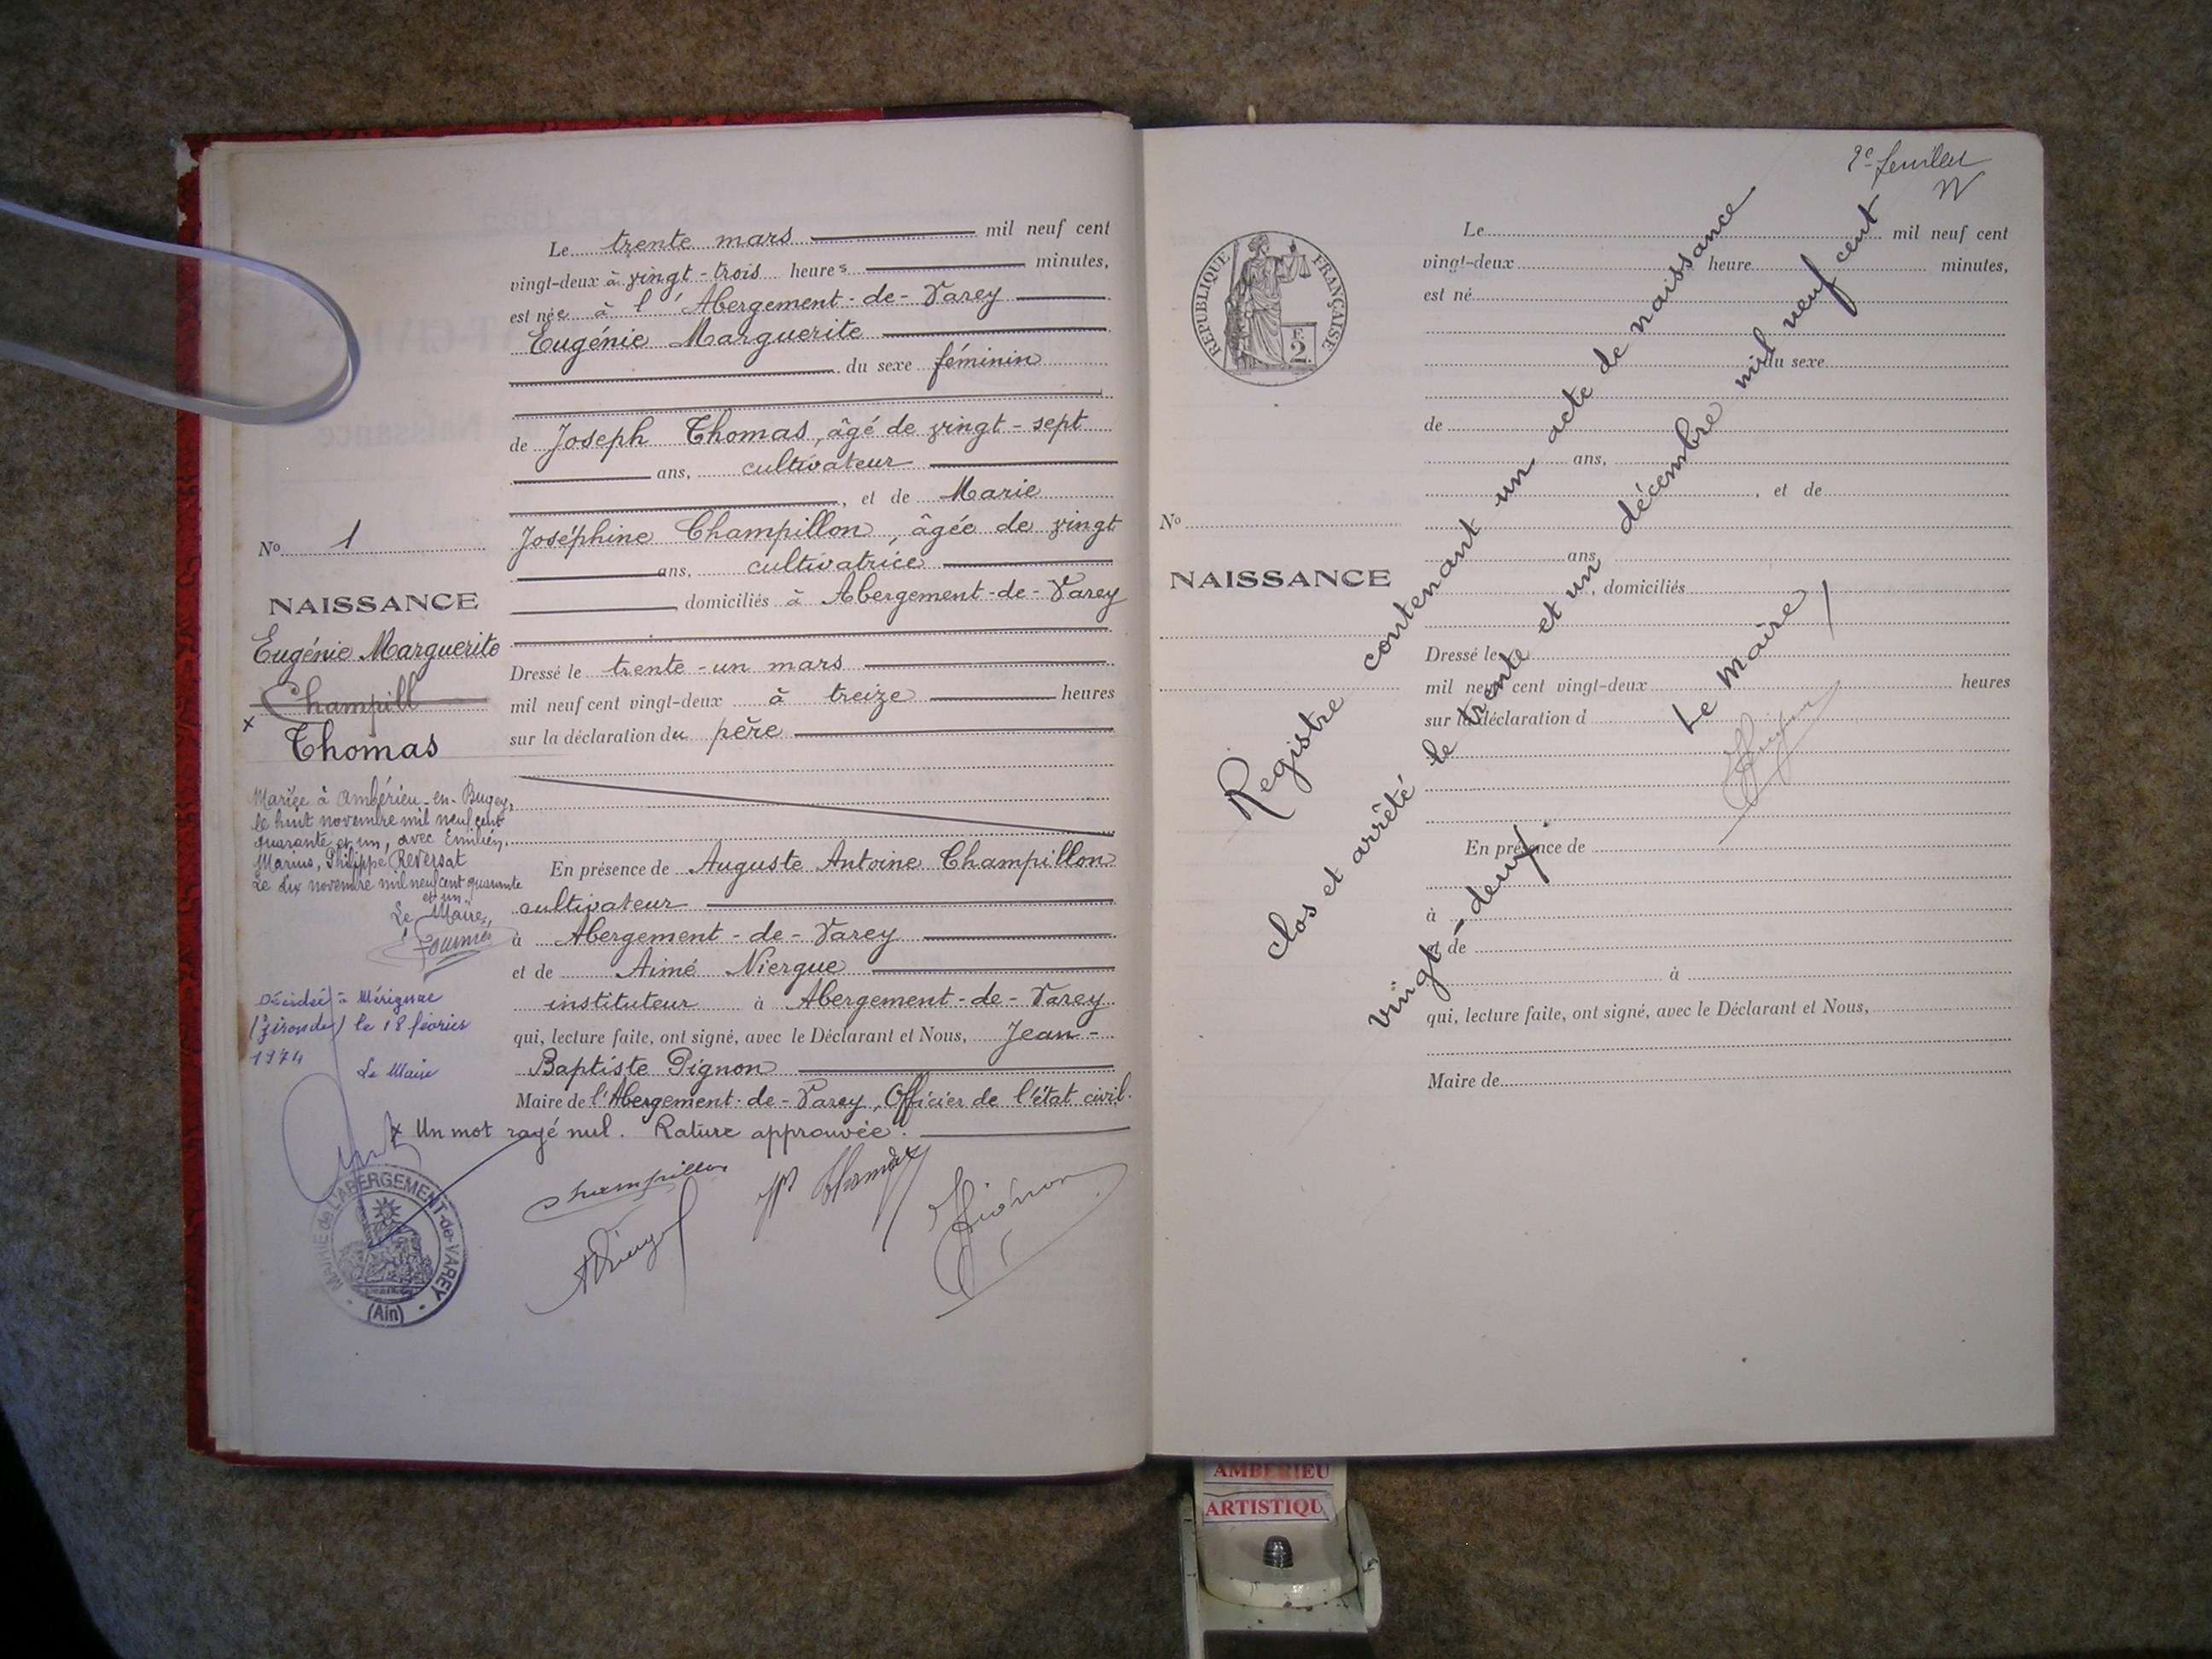 Le trente mars mil neuf cent
vingt-deux à vingt-trois heures minutes,
est née à l'Abergement-de-Varey
Eugénie Marguerite
du sexe féminin
de Joseph Thomas, âgé de vingt-sept
ans, cultivateur
, et de Marie
Joséphine Champillon, âgée de vingt
ans, cultivatrice
domiciliés à Abergement-de-Varey
Dressé le trente-un mars
mil neuf cent vingt-deux à treize heures
sur la déclaration du père
En présence de Auguste Antoine Champillon
cultivateur
à Abergement-de-Varey
et de Aimé Niergue
instituteur à Abergement-de-Varey
qui, lecture faite, ont signé, avec le Déclarant et Nous, Jean-
Baptiste Pignon
Maire de l'Abergement-de-Varey, Officier de l'état civil.
x Un mot rayé nul. Rature approuvée.
Champillon
No 1
NAISSANCE
Eugénie Marguerite
Champill
x
Thomas
Mariée à Ambérieu-en-Bugey,
le huit novembre mil neuf cent
quarante et un, avec Emilien,
Marius, Philippe Reversat
Le dix novembre mil neuf cent quarante
et un.
Le Maire,
Décédée à Mérignac
(Gironde) le 18 février
1974
Le Maire
MAIRIE de L'ABERGEMENT-de-VAREY
(Ain)
2e feuillet
RÉPUBLIQUE FRANÇAISE
F.
2
No
NAISSANCE
Le mil neuf cent
vingt-deux heure minutes,
est né
du sexe
de
ans,
, et de
ans,
, domiciliés
Dressé le
mil neuf cent vingt-deux heures
sur la déclaration d
En présence de
à
et de
à
qui, lecture faite, ont signé, avec le Déclarant et Nous,
Maire de
Registre contenant un acte de naissance
clos et arrêté le trente et un décembre mil neuf cent
vingt-deux.
Le Maire
AMBERIEU
ARTISTIQU